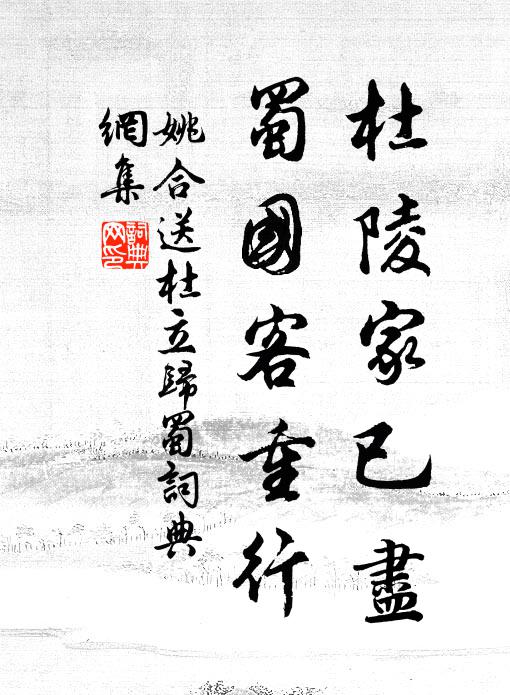 杜陵家已盡
蜀國客重行
姚合送杜立歸蜀詞典
網集
詞典
网印